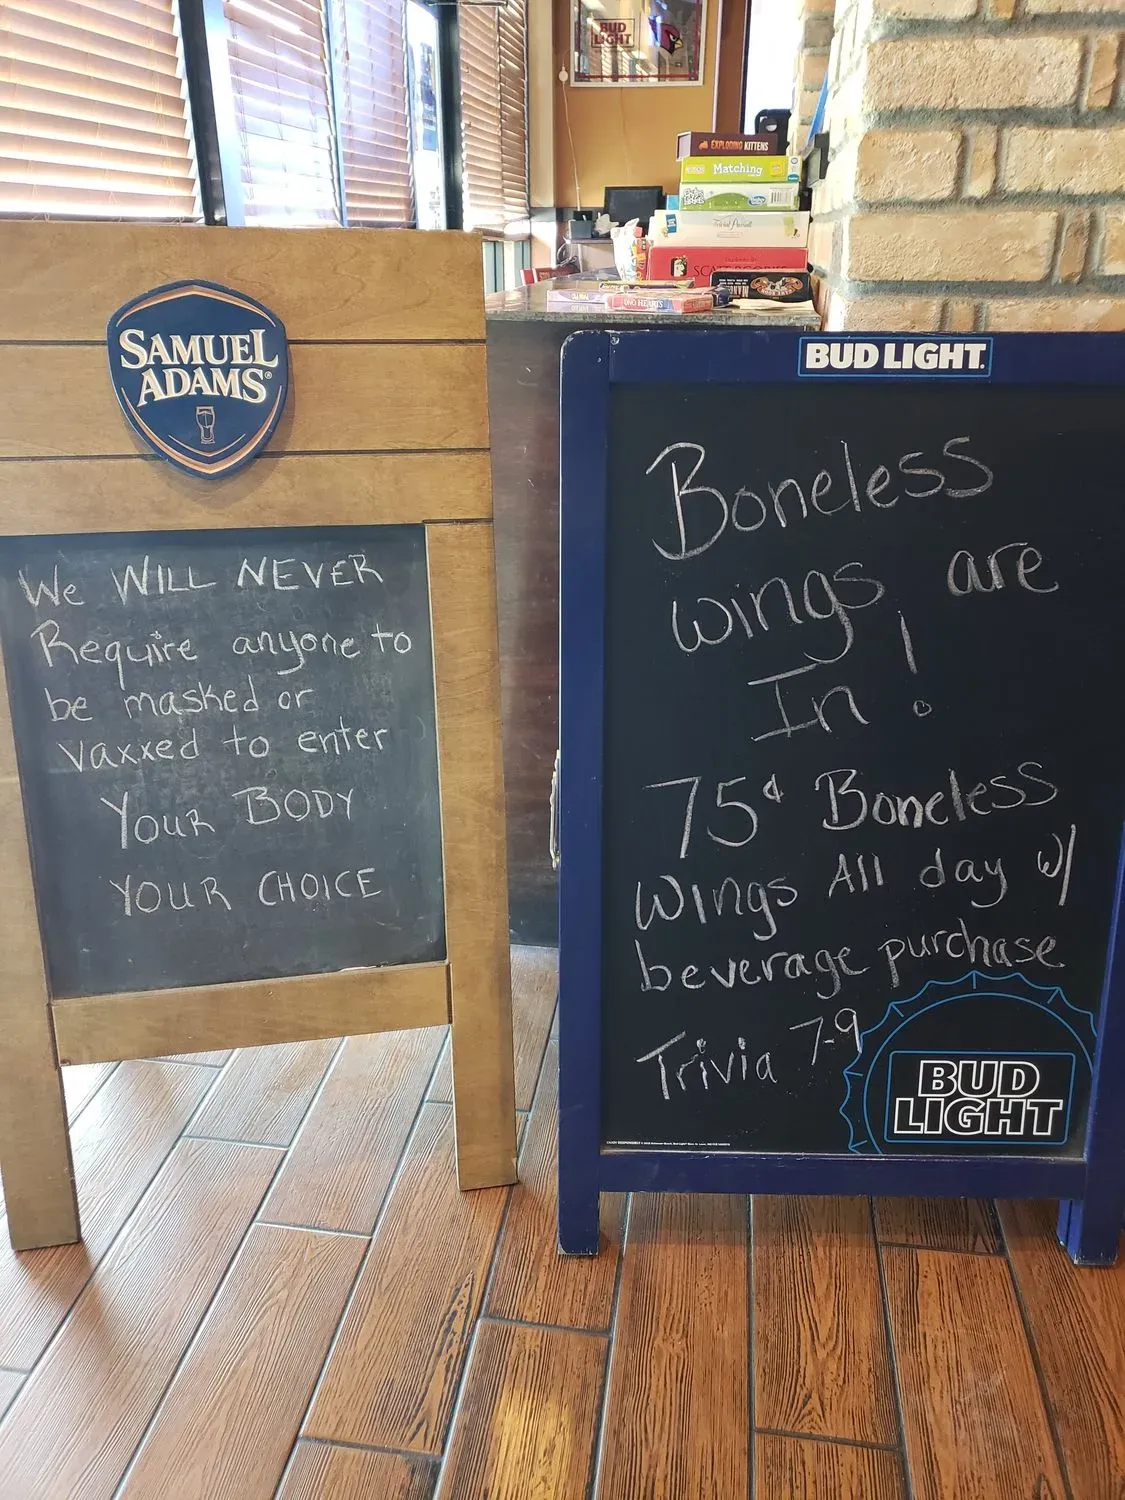 BUD
LIGHT
EXPLODING KITTENS
Matching
SAMUEL
ADAMS®
We WILL NEVER
Require anyone to
be masked or
vaxxed to enter
YOUR BODY
YOUR CHOICE
BUD LIGHT.
Boneless
wings are
In!
75¢ Boneless
Wings All day w/
beverage purchase
Trivia 7-9
BUD
LIGHT